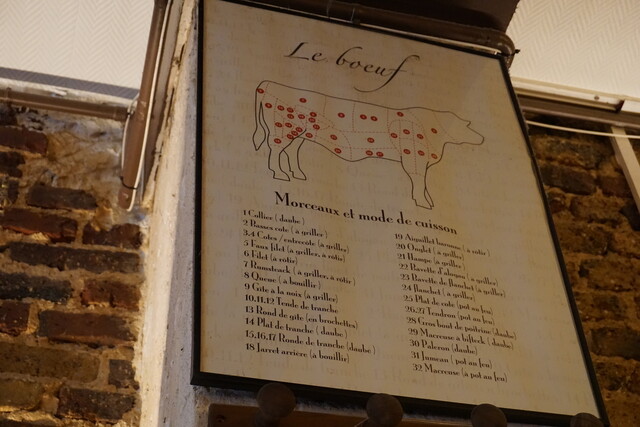 Le boeuf
Morceaux et mode de cuisson
1 Collier ( daube )
2 Basses cote ( à griller )
3,4 Cotes / entrecote (à griller)
5 Faux filet (à griller, à rotir)
6 Filet (à rotir)
7 Rumsteack (à griller, à rotir)
8 Queue ( à bouillir )
9 Gite à la noix (à griller)
10,11,12 Tende de tranche
13 Rond de gite (en brochettes)
14 Plat de tranche ( daube)
15,16,17 Ronde de tranche (daube)
18 Jarret arrière (à bouillir)
19 Aiguillet baronne ( à rotir)
20 Onglet ( à griller)
21 Hampe (à griller)
22 Bavette d'aloyau ( à griller)
23 Bavette de flanchet (à griller)
24 flanchet ( à griller)
25 Plat de cote (pot au feu)
26,27 Tendron (pot au feu)
28 Gros bout de poitrine (daube)
29 Macreuse à bifteck ( daube)
30 Paleron (daube)
31 Jumeau ( pot au feu)
32 Macreuse (à pot au feu)